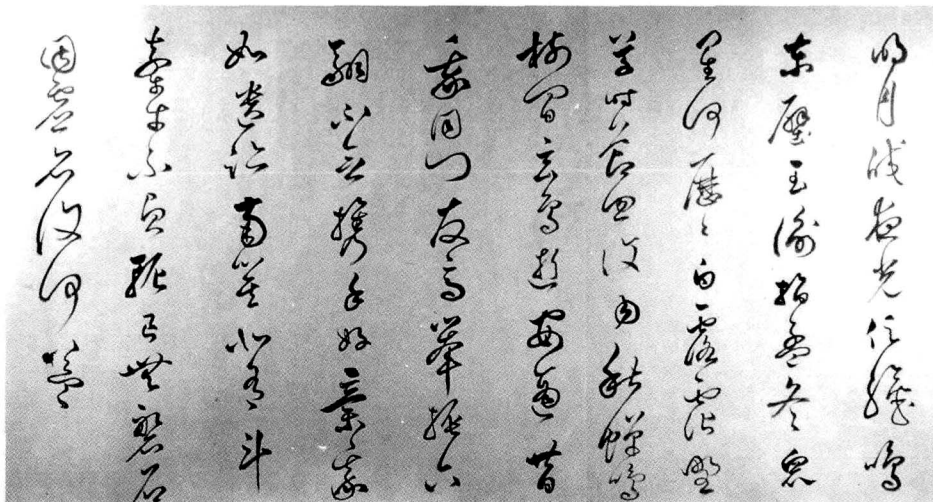 明月皎夜光促織鳴
東壁玉衡指孟冬衆
星何歷〻白露霑野
草時節忽復易秋蟬鳴
樹間玄鳥逝安適昔
我同門友高舉振六
翮不念攜手好棄我
如遺跡南箕北有斗
牽牛不負軛良無磐石
固虛名復何益